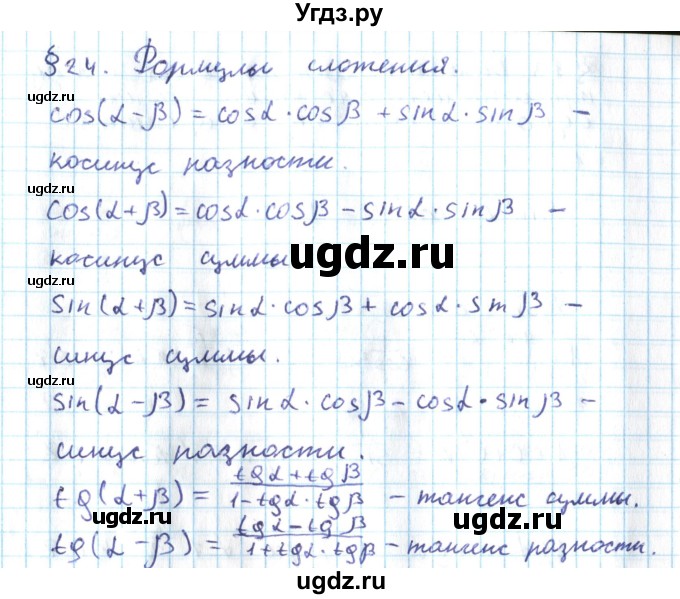 Угдз.ру
§24. Формулы сложения.
ugdz.ru
cos(α-β) = cosα·cosβ + sinα·sinβ –
косинус разности.
ugdz.ru
cos(α+β) = cosα·cosβ – sinα·sinβ –
ugdz.ru
косинус суммы
ugdz.ru
sin(α+β) = sinα·cosβ + cosα·sinβ –
синус суммы.
ugdz.ru
sin(α-β) = sinα·cosβ – cosα·sinβ –
синус разности.
tg(α+β) = (tgα+tgβ)/(1-tgα·tgβ) – тангенс суммы.
ugdz.ru ugdz.ru
tg(α-β) = (tgα-tgβ)/(1+tgα·tgβ) – тангенс разности.
ugdz.ru